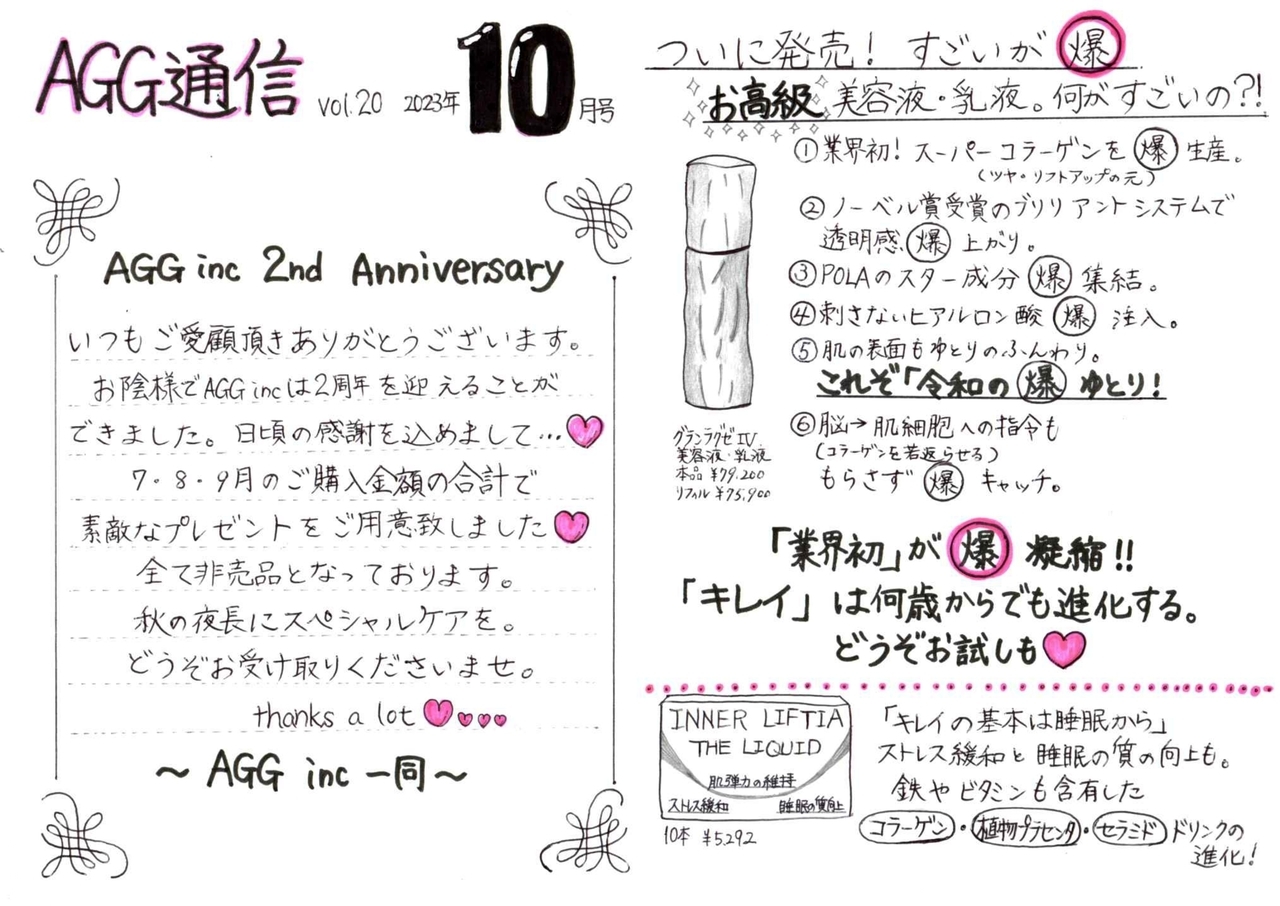 AGG通信 vol.20 2023年 10月号
AGG inc 2nd Anniversary
いつもご愛顧頂きありがとうございます。
お陰様でAGG incは2周年を迎えることが
できました。日頃の感謝を込めまして…
7・8・9月のご購入金額の合計で
素敵なプレゼントをご用意致しました
全て非売品となっております。
秋の夜長にスペシャルケアを。
どうぞお受け取りくださいませ。
thanks a lot
～ AGG inc 一同～
ついに発売! すごいが 爆
お高級 美容液・乳液。何がすごいの?!
①業界初! スーパーコラーゲンを 爆 生産。
(ツヤ・リフトアップの元)
②ノーベル賞受賞のブリリアントシステムで
透明感 爆 上がり。
③POLAのスター成分 爆 集結。
④刺さないヒアルロン酸 爆 注入。
⑤肌の表面もゆとりのふんわり。
これぞ「令和の 爆 ゆとり!
⑥脳→肌細胞への指令も
(コラーゲンを若返らせる)
もらさず 爆 キャッチ。
グランラグゼIV
美容液・乳液
本品 ¥79.200
リフィル ¥75,900
「業界初」が 爆 凝縮!!
「キレイ」は何歳からでも進化する。
どうぞお試しも
INNER LIFTIA
THE LIQUID
肌弾力の維持
ストレス緩和 睡眠の質向上
10本 ¥5.292
「キレイの基本は睡眠から」
ストレス緩和と睡眠の質の向上も。
鉄やビタミンも含有した
コラーゲン・植物プラセンタ・セラミドドリンクの
進化!